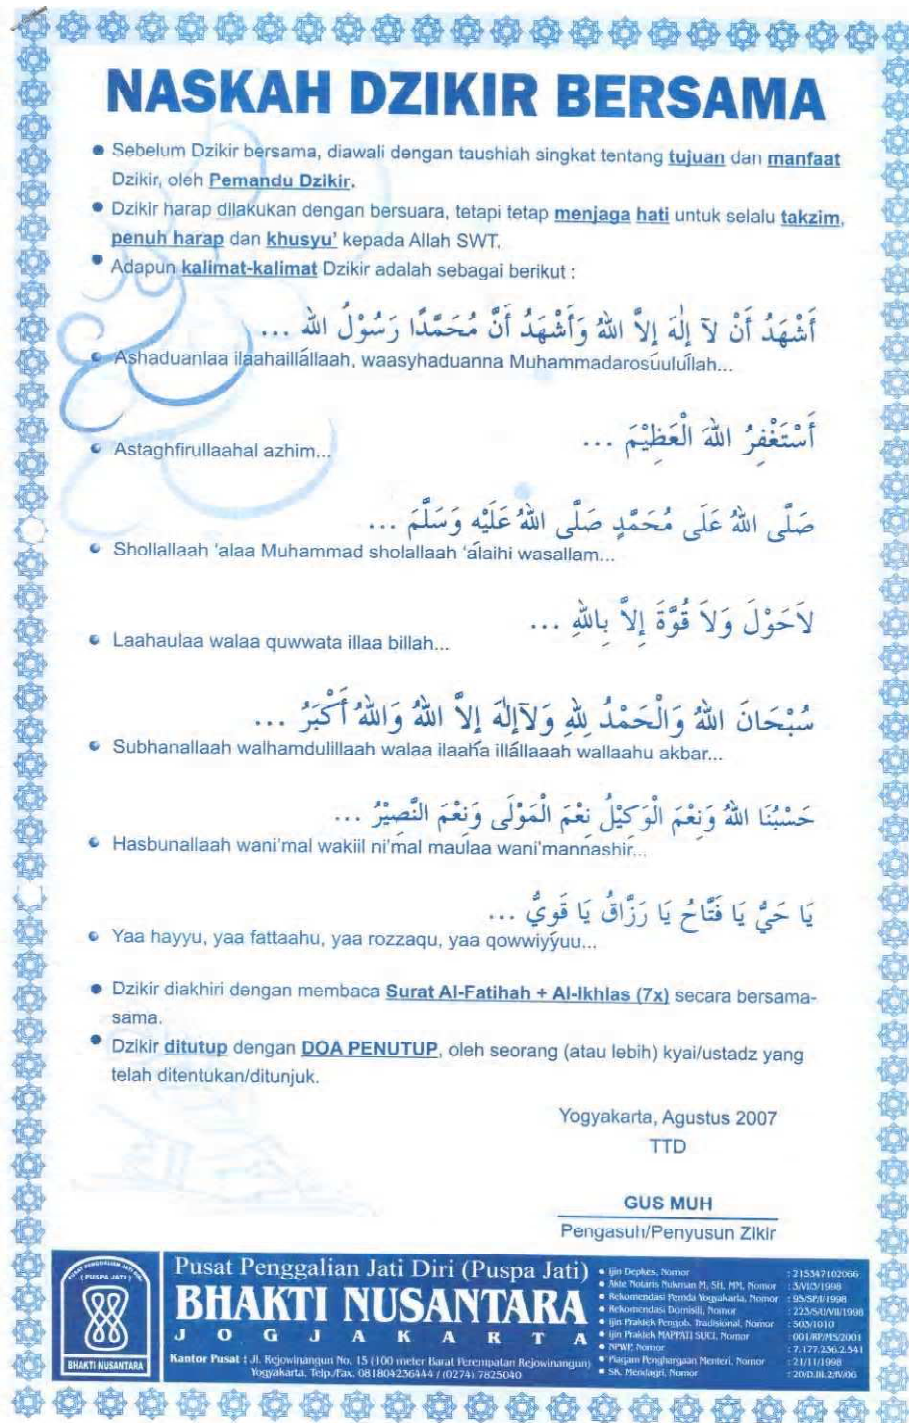 NASKAH DZIKIR BERSAMA
• Sebelum Dzikir bersama, diawali dengan taushiah singkat tentang tujuan dan manfaat
Dzikir, oleh Pemandu Dzikir.
• Dzikir harap dilakukan dengan bersuara, tetapi tetap menjaga hati untuk selalu takzim,
penuh harap dan khusyu' kepada Allah SWT.
• Adapun kalimat-kalimat Dzikir adalah sebagai berikut :
أَشْهَدُ أَنْ لَآ إِلٰهَ إِلاَّ اللهُ وَأَشْهَدُ أَنَّ مُحَمَّدًا رَسُوْلُ اللهِ ...
• Ashaduanlaa ilaahaillállaah, waasyhaduanna Muhammadarosúulullah...
أَسْتَغْفِرُ اللهَ الْعَظِيْمَ ...
• Astaghfirullaahal azhim...
صَلَّى اللهُ عَلَى مُحَمَّدٍ صَلَّى اللهُ عَلَيْهِ وَسَلَّمَ ...
• Shollallaah 'alaa Muhammad sholallaah 'álaihi wasallam...
لاَحَوْلَ وَلاَ قُوَّةَ إِلاَّ بِاللهِ ...
• Laahaulaa walaa quwwata illaa billah...
سُبْحَانَ اللهُ وَالْحَمْدُ لِلهِ وَلآإِلٰهَ إِلاَّ اللهُ وَاللهُ أَكْبَرُ ...
• Subhanallaah walhamdulillaah walaa ilaaha illállaaah wallaahu akbar...
حَسْبُنَا اللهُ وَنِعْمَ الْوَكِيْلُ نِعْمَ الْمَوْلَى وَنِعْمَ النَّصِيْرُ ...
• Hasbunallaah wani'mal wakiil ni'mal maulaa wani'mannashir...
يَا حَيُّ يَا فَتَّاحُ يَا رَزَّاقُ يَا قَوِيُّ ...
• Yaa hayyu, yaa fattaahu, yaa rozzaqu, yaa qowwiyyuu...
• Dzikir diakhiri dengan membaca Surat Al-Fatihah + Al-Ikhlas (7x) secara bersama-
sama.
• Dzikir ditutup dengan DOA PENUTUP, oleh seorang (atau lebih) kyai/ustadz yang
telah ditentukan/ditunjuk.
Yogyakarta, Agustus 2007
TTD
GUS MUH
Pengasuh/Penyusun Zikir
( PUSPA JATI )
BHAKTI NUSANTARA
Pusat Penggalian Jati Diri (Puspa Jati)
BHAKTI NUSANTARA
J O G J A K A R T A
Kantor Pusat : Jl. Rejowinangun No. 15 (100 meter Barat Perempatan Rejowinangun)
Yogyakarta. Telp./Fax. 081804256444 / (0274) 7825040
• Ijin Depkes, Nomor : 215347102066
• Akte Notaris Nukman M, SH, MM, Nomor : 3/VII/5/1998
• Rekomendasi Pemda Yogyakarta, Nomor : 95/SP/I/1998
• Rekomendasi Domisili, Nomor : 223/S/U/VII/1998
• Ijin Praktek Pengob. Tradisional, Nomor : 503/1010
• Ijin Praktek MAPPATI SUCI, Nomor : 001/RP/MS/2001
• NPWP, Nomor : 7.177.236.2.541
• Piagam Penghargaan Menteri, Nomor : 21/11/1998
• SK. Mendagri, Nomor : 20/D.III.2/IV/06